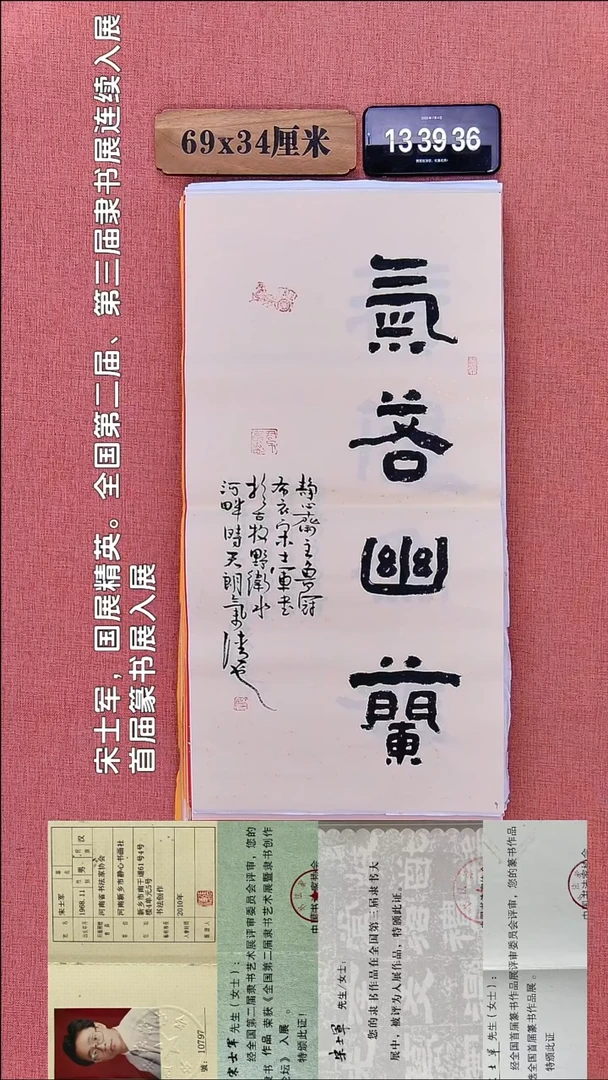 宋士军，国展精英。全国第二届、第三届隶书展连续入展
首届篆书展入展
69x34厘米
13 39 36
氣若幽蘭
布衣宋士軍書
於古牧野衛水
河畔時天朗氣清也
宋士军
1968.11 男 汉
河南省书法家协会
河南新乡市静心书画社
新乡市南干道61号4号
楼4单元5号
书法创作
2010年
號：10797
宋士军 先生（女士）：
经全国第二届隶书艺术展评审委员会评审，您的
隶书 作品 荣获《全国第二届隶书艺术展暨隶书创作
论坛》入展。
特颁此证！
宋士军 先生/女士：
您的隶书作品在全国第三届隶书大
展中，被评为入展作品，特颁此证。
士军 先生（女士）：
经全国首届篆书作品展评审委员会评审，您的篆书作品
全国首届篆书作品展。
特颁此证